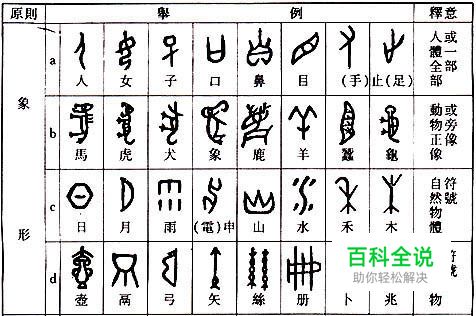 原則 舉例 釋意
象形
a
人 女 子 口 鼻 目 (手) 止(足)
人體全部
或一部
b
馬 虎 犬 象 鹿 羊 蠶 龜
動物正像
或旁像
c
日 月 雨 (電)申 山 水 禾 木
自然物體
符號
d
壺 鬲 弓 矢 絲 册 卜 兆
物
百科全说
助你轻松解决